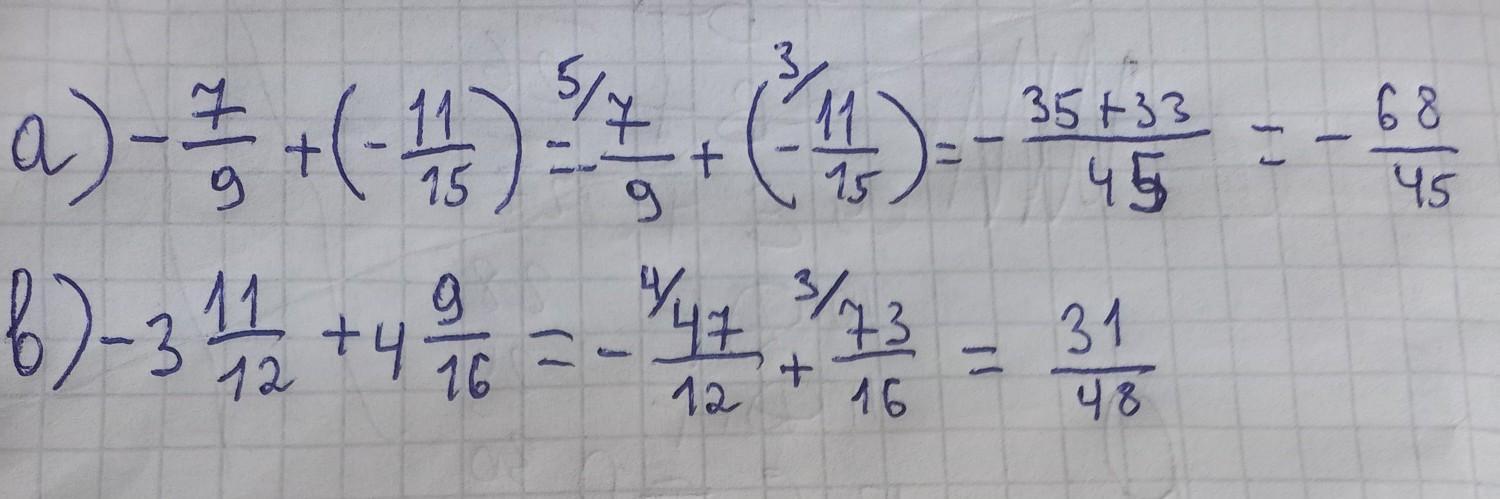 а) - 7/9 + (- 11/15) = - ⁵/7/9 + (- ³/11/15) = - 35+33/45 = - 68/45
в) - 3 11/12 + 4 9/16 = - ⁴/47/12 + ³/73/16 = 31/48